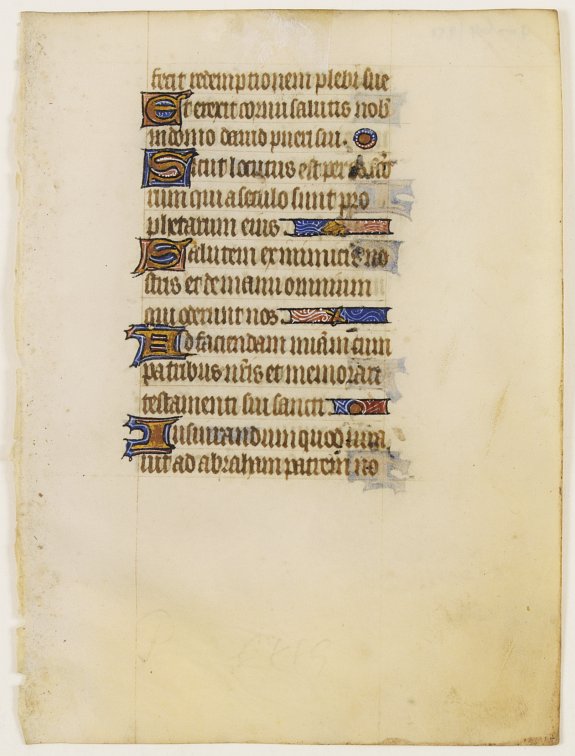 fecit redemptionem plebi sue
Et erexit cornu salutis nob
in domo dauid pueri sui.
Sicut locutus est per scō
rum qui a seculo sunt pro
phetarum eius
Salutem ex inimicis no
stris et de manu omnium
qui oderunt nos
Ad faciendam miām cum
patribus nr̄is et memorari
testamenti sui sancti
Iusiurandum quod iura
uit ad abraham patrem no